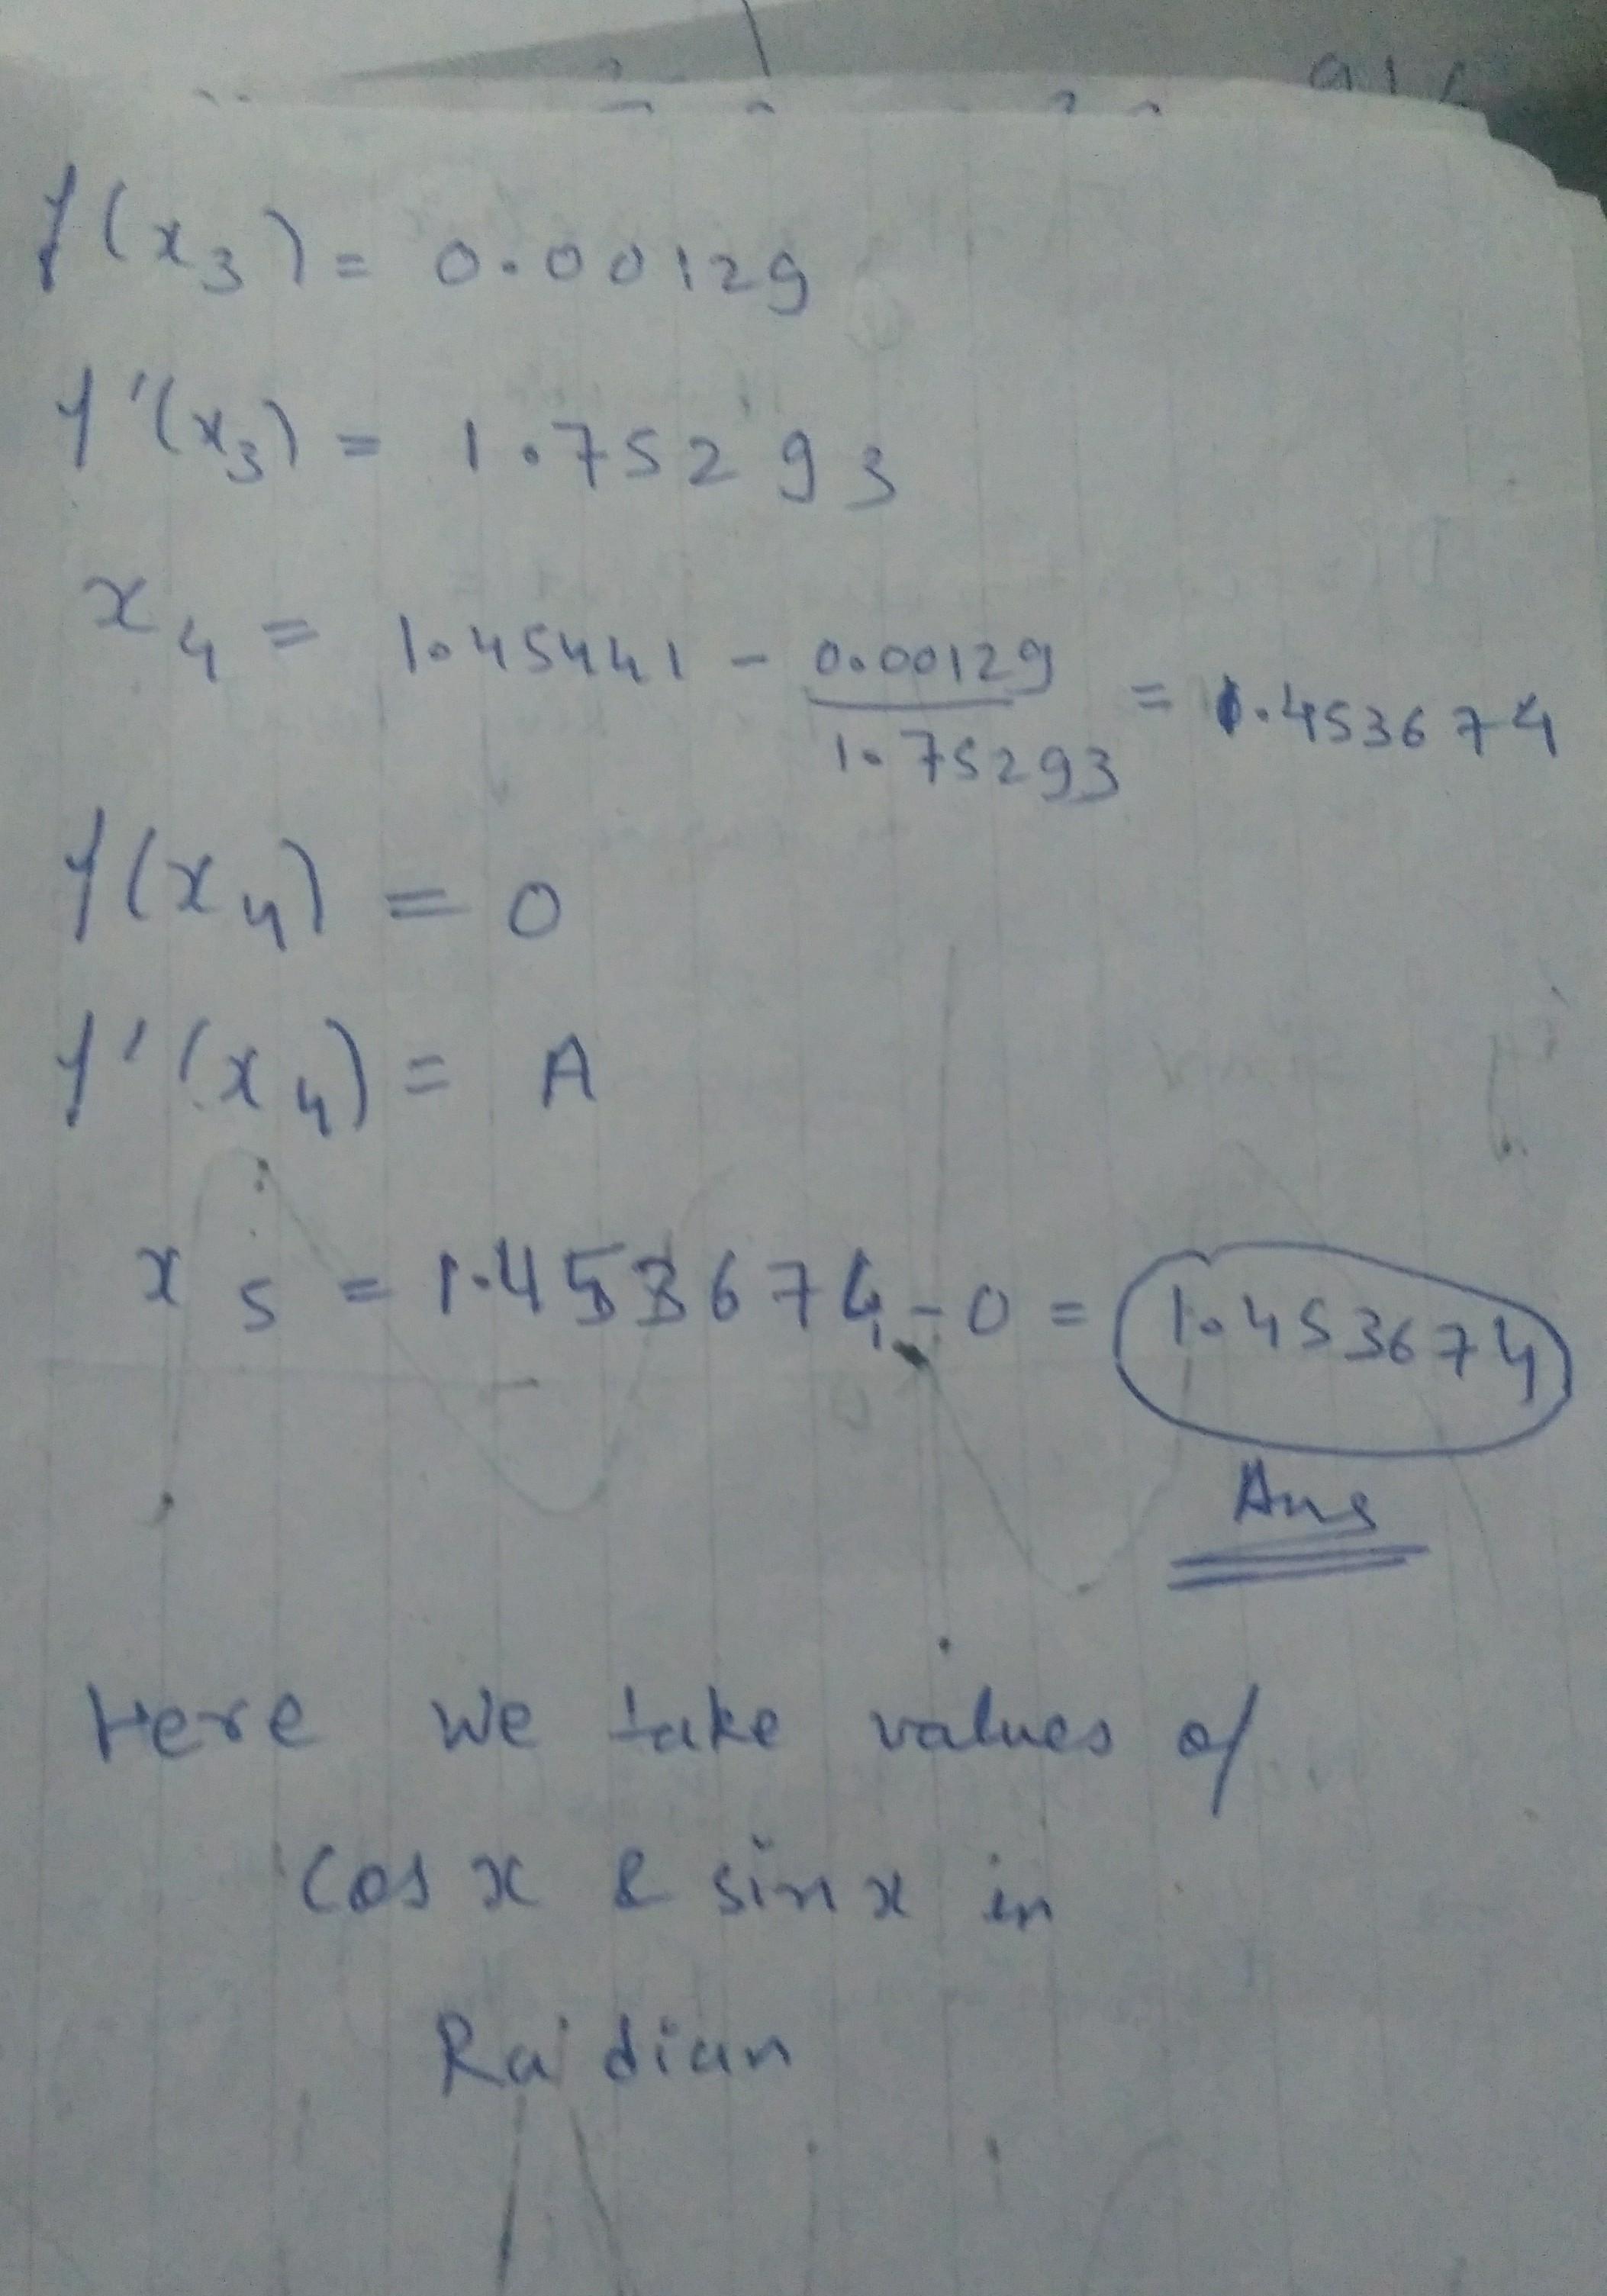 f(x₃) = 0.00129
f'(x₃) = 1.75293
x₄ = 1.45441 - 0.00129/1.75293 = 1.453674
f(x₄) = 0
f'(x₄) = A
x₅ = 1.453674 - 0 = 1.453674
Ans
Here we take values of
Cos x & sin x in
Radian